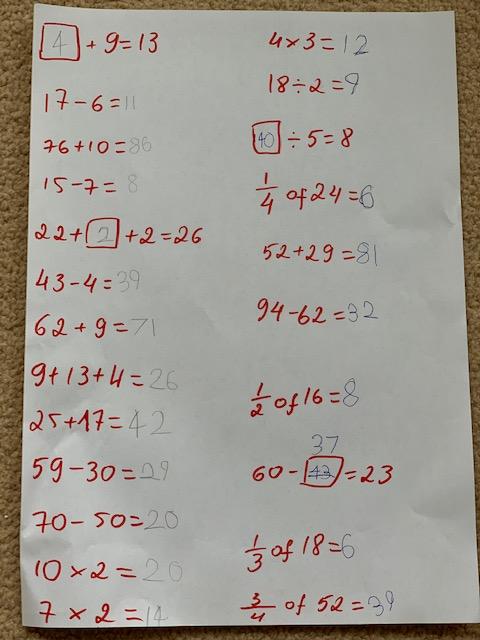 4 + 9 = 13
17 - 6 = 11
76 + 10 = 86
15 - 7 = 8
22 + 2 + 2 = 26
43 - 4 = 39
62 + 9 = 71
9 + 13 + 4 = 26
25 + 17 = 42
59 - 30 = 29
70 - 50 = 20
10 × 2 = 20
7 × 2 = 14
4 × 3 = 12
18 ÷ 2 = 9
40 ÷ 5 = 8
1/4 of 24 = 6
52 + 29 = 81
94 - 62 = 32
1/2 of 16 = 8
37
60 - 43 = 23
1/3 of 18 = 6
3/4 of 52 = 39